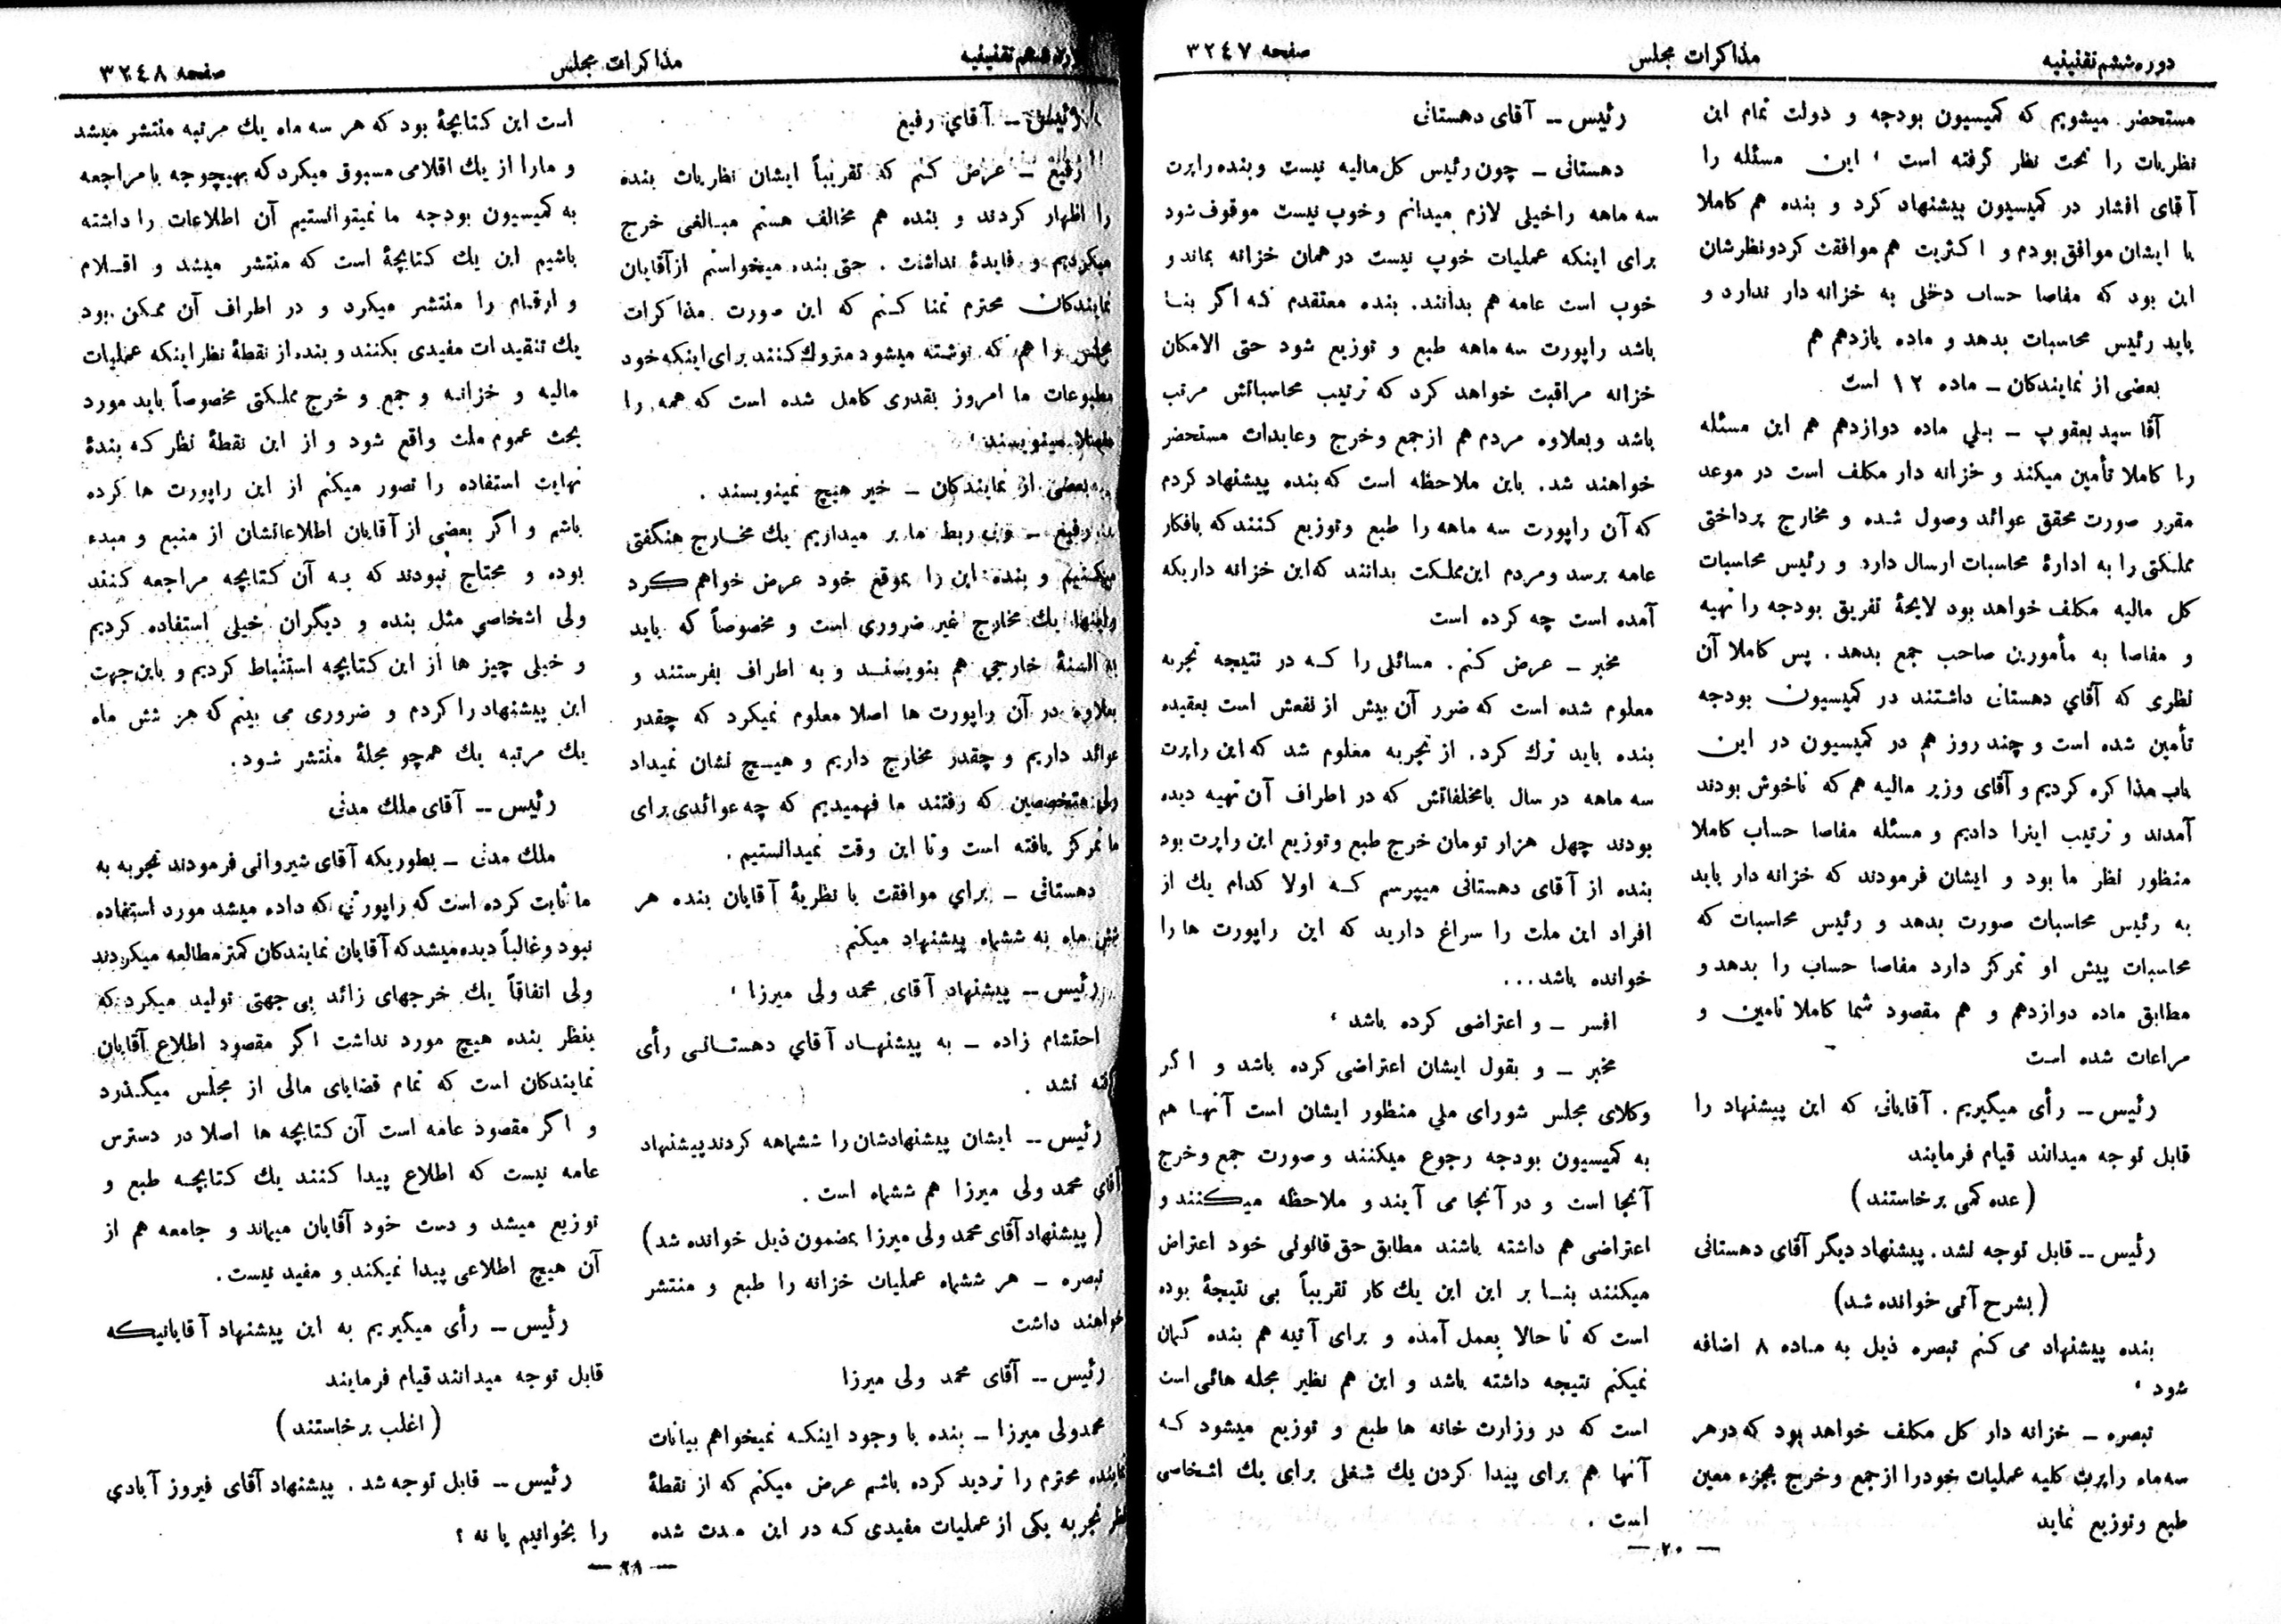 دوره ششم تقنینیه
مذاکرات مجلس
صفحه ۳۲۴۷
مستحضر میشویم که کمیسیون بودجه و دولت تمام این
نظریات را تحت نظر گرفته است ، این مسئله را
آقای افشار در کمیسیون پیشنهاد کرد و بنده هم کاملا
با ایشان موافق بودم و اکثریت هم موافقت کرد و نظرشان
این بود که مفاصا حساب دخلی به خزانه دار ندارد و
باید رئیس محاسبات بدهد و ماده یازدهم هم
بعضی از نمایندکان ـ ماده ۱۲ است
آقا سید یعقوب ـ بلي ماده دوازدهم هم این مسئله
را کاملا تأمین میکند و خزانه دار مکلف است در موعد
مقرر صورت محقق عوائد وصول شده و مخارج پرداختی
مملکتی را به ادارهٔ محاسبات ارسال دارد و رئیس محاسبات
کل مالیه مکلف خواهد بود لایحهٔ تفریق بودجه را تهیه
و مفاصا به مأمورین صاحب جمع بدهد . پس کاملا آن
نظری که آقاي دهستانی داشتند در کمیسیون بودجه
تأمین شده است و چند روز هم در کمیسیون در این
باب مذاکره کردیم و آقای وزیر مالیه هم که ناخوش بودند
آمدند و ترتیب اینرا دادیم و مسئله مفاصا حساب کاملا
منظور نظر ما بود و ایشان فرمودند که خزانه دار باید
به رئیس محاسبات صورت بدهد و رئیس محاسبات که
محاسبات پیش او تمرکز دارد مفاصا حساب را بدهد و
مطابق ماده دوازدهم و هم مقصود شما کاملا تامین و
مراعات شده است
رئیس ـ رأی میگیریم . آقایانی که این پیشنهاد را
قابل توجه میدانند قیام فرمایند
( عده کمی برخاستند )
رئیس ـ قابل توجه نشد . پیشنهاد دیگر آقای دهستانی
( بشرح آتی خوانده شد )
بنده پیشنهاد می کنم تبصره ذیل به ماده ۸ اضافه
شود ،
تبصره ـ خزانه دار کل مکلف خواهد بود که در هر
سه ماه راپرت کلیه عملیات خود را از جمع و خرج بجزء معین
طبع و توزیع نماید
رئیس ـ آقای دهستانی
دهستانی ـ چون رئیس کل مالیه نیست و بنده راپرت
سه ماهه را خیلی لازم میدانم و خوب نیست موقوف شود
برای اینکه عملیات خوب نیست در همان خزانه بماند و
خوب است عامه هم بدانند. بنده معتقدم که اگر بنا
باشد راپورت سه ماهه طبع و توزیع شود حتی الامکان
خزانه مراقبت خواهد کرد که ترتیب محاسباتش مرتب
باشد و بعلاوه مردم هم از جمع و خرج و عایدات مستحضر
خواهند شد. باین ملاحظه است که بنده پیشنهاد کردم
که آن راپورت سه ماهه را طبع و توزیع کنند که بافکار
عامه برسد و مردم این مملکت بدانند که این خزانه داریکه
آمده است چه کرده است
مخبر ـ عرض کنم. مسائلی را که در نتیجه تجربه
معلوم شده است که ضرر آن بیش از نفعش است بعقیده
بنده باید ترك کرد. از تجربه معلوم شد که این راپرت
سه ماهه در سال بامخلفاتش که در اطراف آن تهیه دیده
بودند چهل هزار تومان خرج طبع و توزیع این راپرت بود
بنده از آقای دهستانی میپرسم که اولا کدام یك از
افراد این ملت را سراغ دارید که این راپورت ها را
خوانده باشد...
افسر ـ و اعتراضی کرده باشد ،
مخبر ـ و بقول ایشان اعتراضی کرده باشد و اگر
وکلای مجلس شورای ملي منظور ایشان است آنها هم
به کمیسیون بودجه رجوع میکنند و صورت جمع و خرج
آنجا است و در آنجا می آیند و ملاحظه میکنند و
اعتراضی هم داشته باشند مطابق حق قانونی خود اعتراض
میکنند بنا بر این این یك کار تقریباً بی نتیجهٔ بوده
است که تا حالا بعمل آمده و برای آتیه هم بنده گمان
نمیکنم نتیجه داشته باشد و این هم نظیر مجله هائی است
است که در وزارت خانه ها طبع و توزیع میشود که
آنها هم برای پیدا کردن یك شغلی برای یك اشخاصی
است .
— ۲۰ —
تقنینیه
مذاکرات مجلس
صفحه ۳۲۴۸
رئیس ـ آقاي رفیع
رفیع ـ عرض کنم که تقریباً ایشان نظریات بنده
را اظهار کردند و بنده هم مخالف هستم مبالغی خرج
میکردیم و فایدهٔ نداشت . حتی بنده میخواستم از آقایان
نمایندکان محترم تمنا کنم که این صورت مذاکرات
مجلس را هم که نوشته میشود متروك کنند برای اینکه خود
مطبوعات ما امروز بقدری کامل شده است که همه را
مینویسند ،
بعضی از نمایندکان ـ خیر هیچ نمینویسند .
رفیع ـ ربط ما بر میداریم یك مخارج هنگفتی
میکنیم و بنده این را بموقع خود عرض خواهم کرد
واینها یك مخارج غیر ضروري است و مخصوصاً که باید
به السنهٔ خارجي هم بنویسند و به اطراف بفرستند و
بعلاوه در آن راپورت ها اصلا معلوم نمیکرد که چقدر
عوائد داریم و چقدر مخارج داریم و هیچ نشان نمیداد
ولی متخصصین که رفتند ما فهمیدیم که چه عوائدی برای
ما تمرکز یافته است و تا این وقت نمیدانستیم .
دهستانی ـ براي موافقت با نظریهٔ آقایان بنده هر
شش ماه به ششماه پیشنهاد میکنم
رئیس ـ پیشنهاد آقای محمد ولی میرزا ،
احتشام زاده ـ به پیشنهاد آقاي دهستانی رأی
گرفته نشد .
رئیس ـ ایشان پیشنهادشان را ششماهه کردند پیشنهاد
آقای محمد ولی میرزا هم ششماه است .
( پیشنهاد آقای محمد ولی میرزا بمضمون ذیل خوانده شد )
تبصره ـ هر ششماه عملیات خزانه را طبع و منتشر
خواهند داشت
رئیس ـ آقای محمد ولی میرزا
محمدولی میرزا ـ بنده با وجود اینکه نمیخواهم بیانات
نماینده محترم را تردید کرده باشم عرض میکنم که از نقطهٔ
نظر تجربه یکی از عملیات مفیدی که در این مدت شده
است این کتابچهٔ بود که هر سه ماه یك مرتبه منتشر میشد
و مارا از یك اقلامی مسبوق میکرد که بهیچوجه با مراجعه
به کمیسیون بودجه ما نمیتوانستیم آن اطلاعات را داشته
باشیم این یك کتابچهٔ است که منتشر میشد و اقلام
و ارقام را منتشر میکرد و در اطراف آن ممکن بود
یك تنقیدات مفیدی بکنند و بنده از نقطهٔ نظر اینکه عملیات
مالیه و خزانه و جمع و خرج مملکتی مخصوصاً باید مورد
بحث عموم ملت واقع شود و از این نقطهٔ نظر که بندهٔ
نهایت استفاده را تصور میکنم از این راپورت ها کرده
باشم و اگر بعضی از آقایان اطلاعاتشان از منبع و مبدء
بوده و محتاج نبودند که به آن کتابچه مراجعه کنند
ولی اشخاصي مثل بنده و دیگران خیلی استفاده کردیم
و خیلی چیز ها از این کتابچه استنباط کردیم و باین جهت
این پیشنهاد را کردم و ضروری می بینم که هر شش ماه
یك مرتبه یك همچو مجلهٔ منتشر شود.
رئیس ـ آقای ملك مدنی
ملك مدنی ـ بطوریکه آقای شیروانی فرمودند تجربه به
ما ثابت کرده است که راپورتي که داده میشد مورد استفاده
نبود و غالباً دیده میشد که آقایان نمایندکان کمتر مطالعه میکردند
ولی اتفاقاً یك خرجهای زائد بی جهتی تولید میکرد که
بنظر بنده هیچ مورد نداشت اگر مقصود اطلاع آقایان
نمایندکان است که تمام قضایای مالی از مجلس میگذرد
و اگر مقصود عامه است آن کتابچه ها اصلا در دسترس
عامه نیست که اطلاع پیدا کنند یك کتابچه طبع و
توزیع میشد و دست خود آقایان میماند و جامعه هم از
آن هیچ اطلاعی پیدا نمیکند و مفید نیست.
رئیس ـ رأی میگیریم به این پیشنهاد آقایانیکه
قابل توجه میدانند قیام فرمایند
( اغلب برخاستند )
رئیس ـ قابل توجه شد . پیشنهاد آقای فیروز آبادي
را بخوانیم یا نه ؟